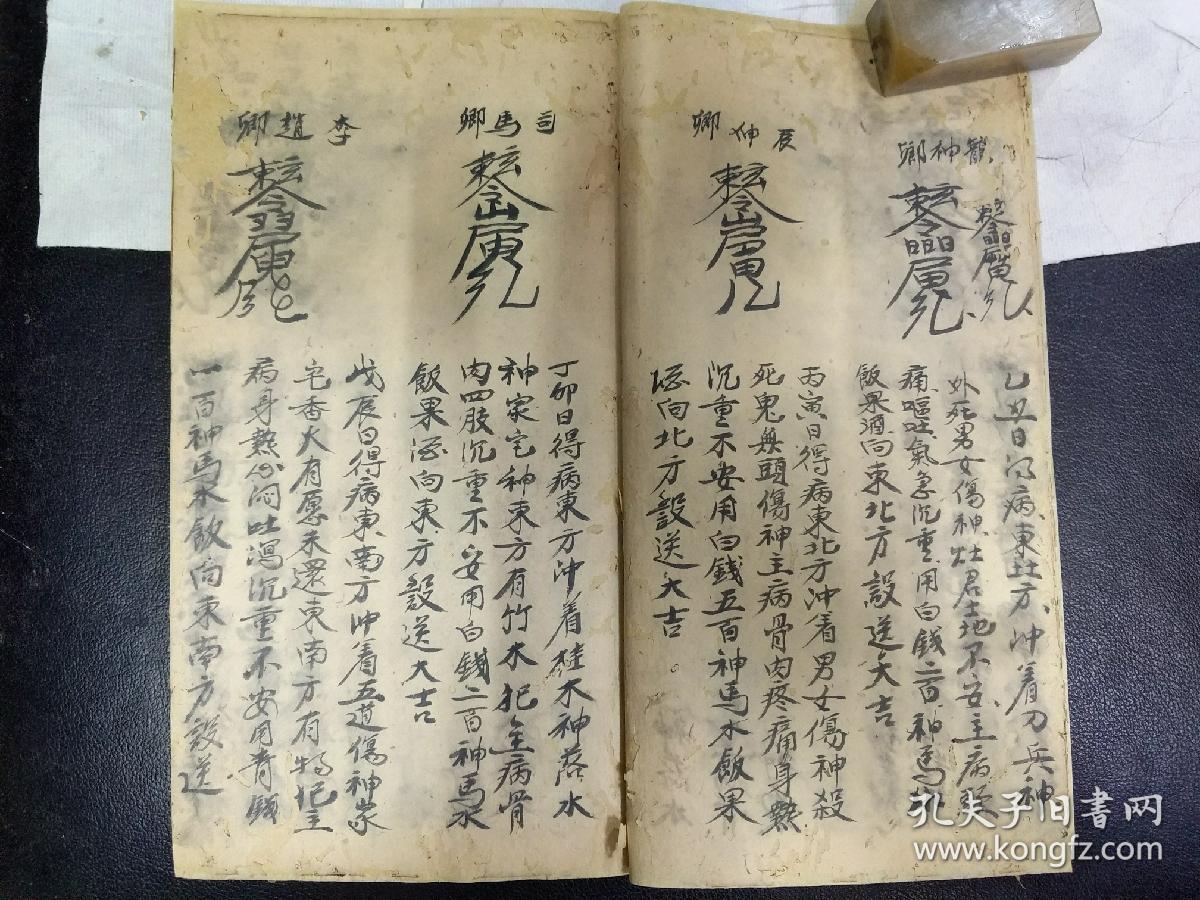 乙丑日得病東北方冲着刀兵神
外死男女傷神灶君土地不安主病頭
痛嘔吐氣急沉重用白錢二百神馬水
飯果酒向東北方設送大吉
卿伸辰
丙寅日得病東北方冲着男女傷神殺
死鬼無頭傷神主病骨肉疼痛身熱
沉重不安用白錢五百神馬水飯果
酒向北方設送大吉
司馬卿
丁卯日得病東方冲着桂木神落水
神家宅神東方有竹木犯主病骨
肉四肢沉重不安用白錢二百神馬水
飯果酒向東方設送大吉
李趙卿
戊辰日得病東南方冲着五道傷神家
宅香火有愿未還東南方有物犯主
病身熱心悶吐瀉沉重不安用青錢
一百神馬水飯向東南方設送
孔夫子旧书网
www.kongfz.com